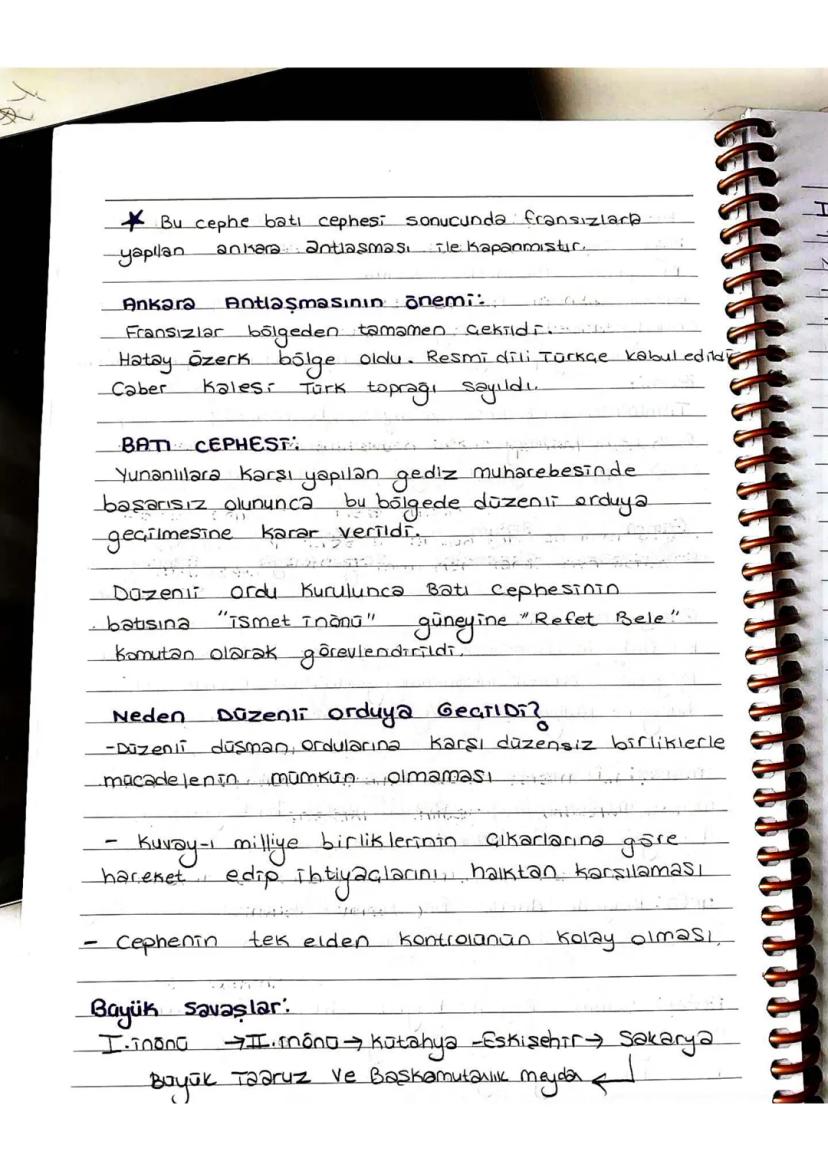 ★ Bu cephe batı cephesi sonucunda fransızlarla
yapılan ankara antlaşması ile kapanmıştır.
Ankara Antlaşmasının önemi:
Fransızlar bölgeden tamamen çekildi.
Hatay özerk bölge oldu. Resmi dili Türkçe kabul edildi
Caber Kalesi Türk toprağı sayıldı.
BATI CEPHESİ:
Yunanlılara karşı yapılan gediz muharebesinde
başarısız olununca bu bölgede düzenli orduya
geçilmesine karar verildi.
Düzenli ordu kurulunca Batı cephesinin
batısına "İsmet İnönü" güneyine "Refet Bele"
komutan olarak görevlendirildi.
Neden Düzenli orduya Geçildi?
-Düzenli düşman ordularına karşı düzensiz birliklerle
mücadelenin mümkün olmaması
- Kuvay-ı milliye birliklerinin çıkarlarına göre
hareket edip ihtiyaçlarını halktan karşılaması
- Cephenin tek elden kontrolünün kolay olması
Büyük savaşlar:
I.inönü →II.inönü→ Kütahya -Eskişehir→ Sakarya
Büyük Taaruz ve Başkamutanlık meyda ←